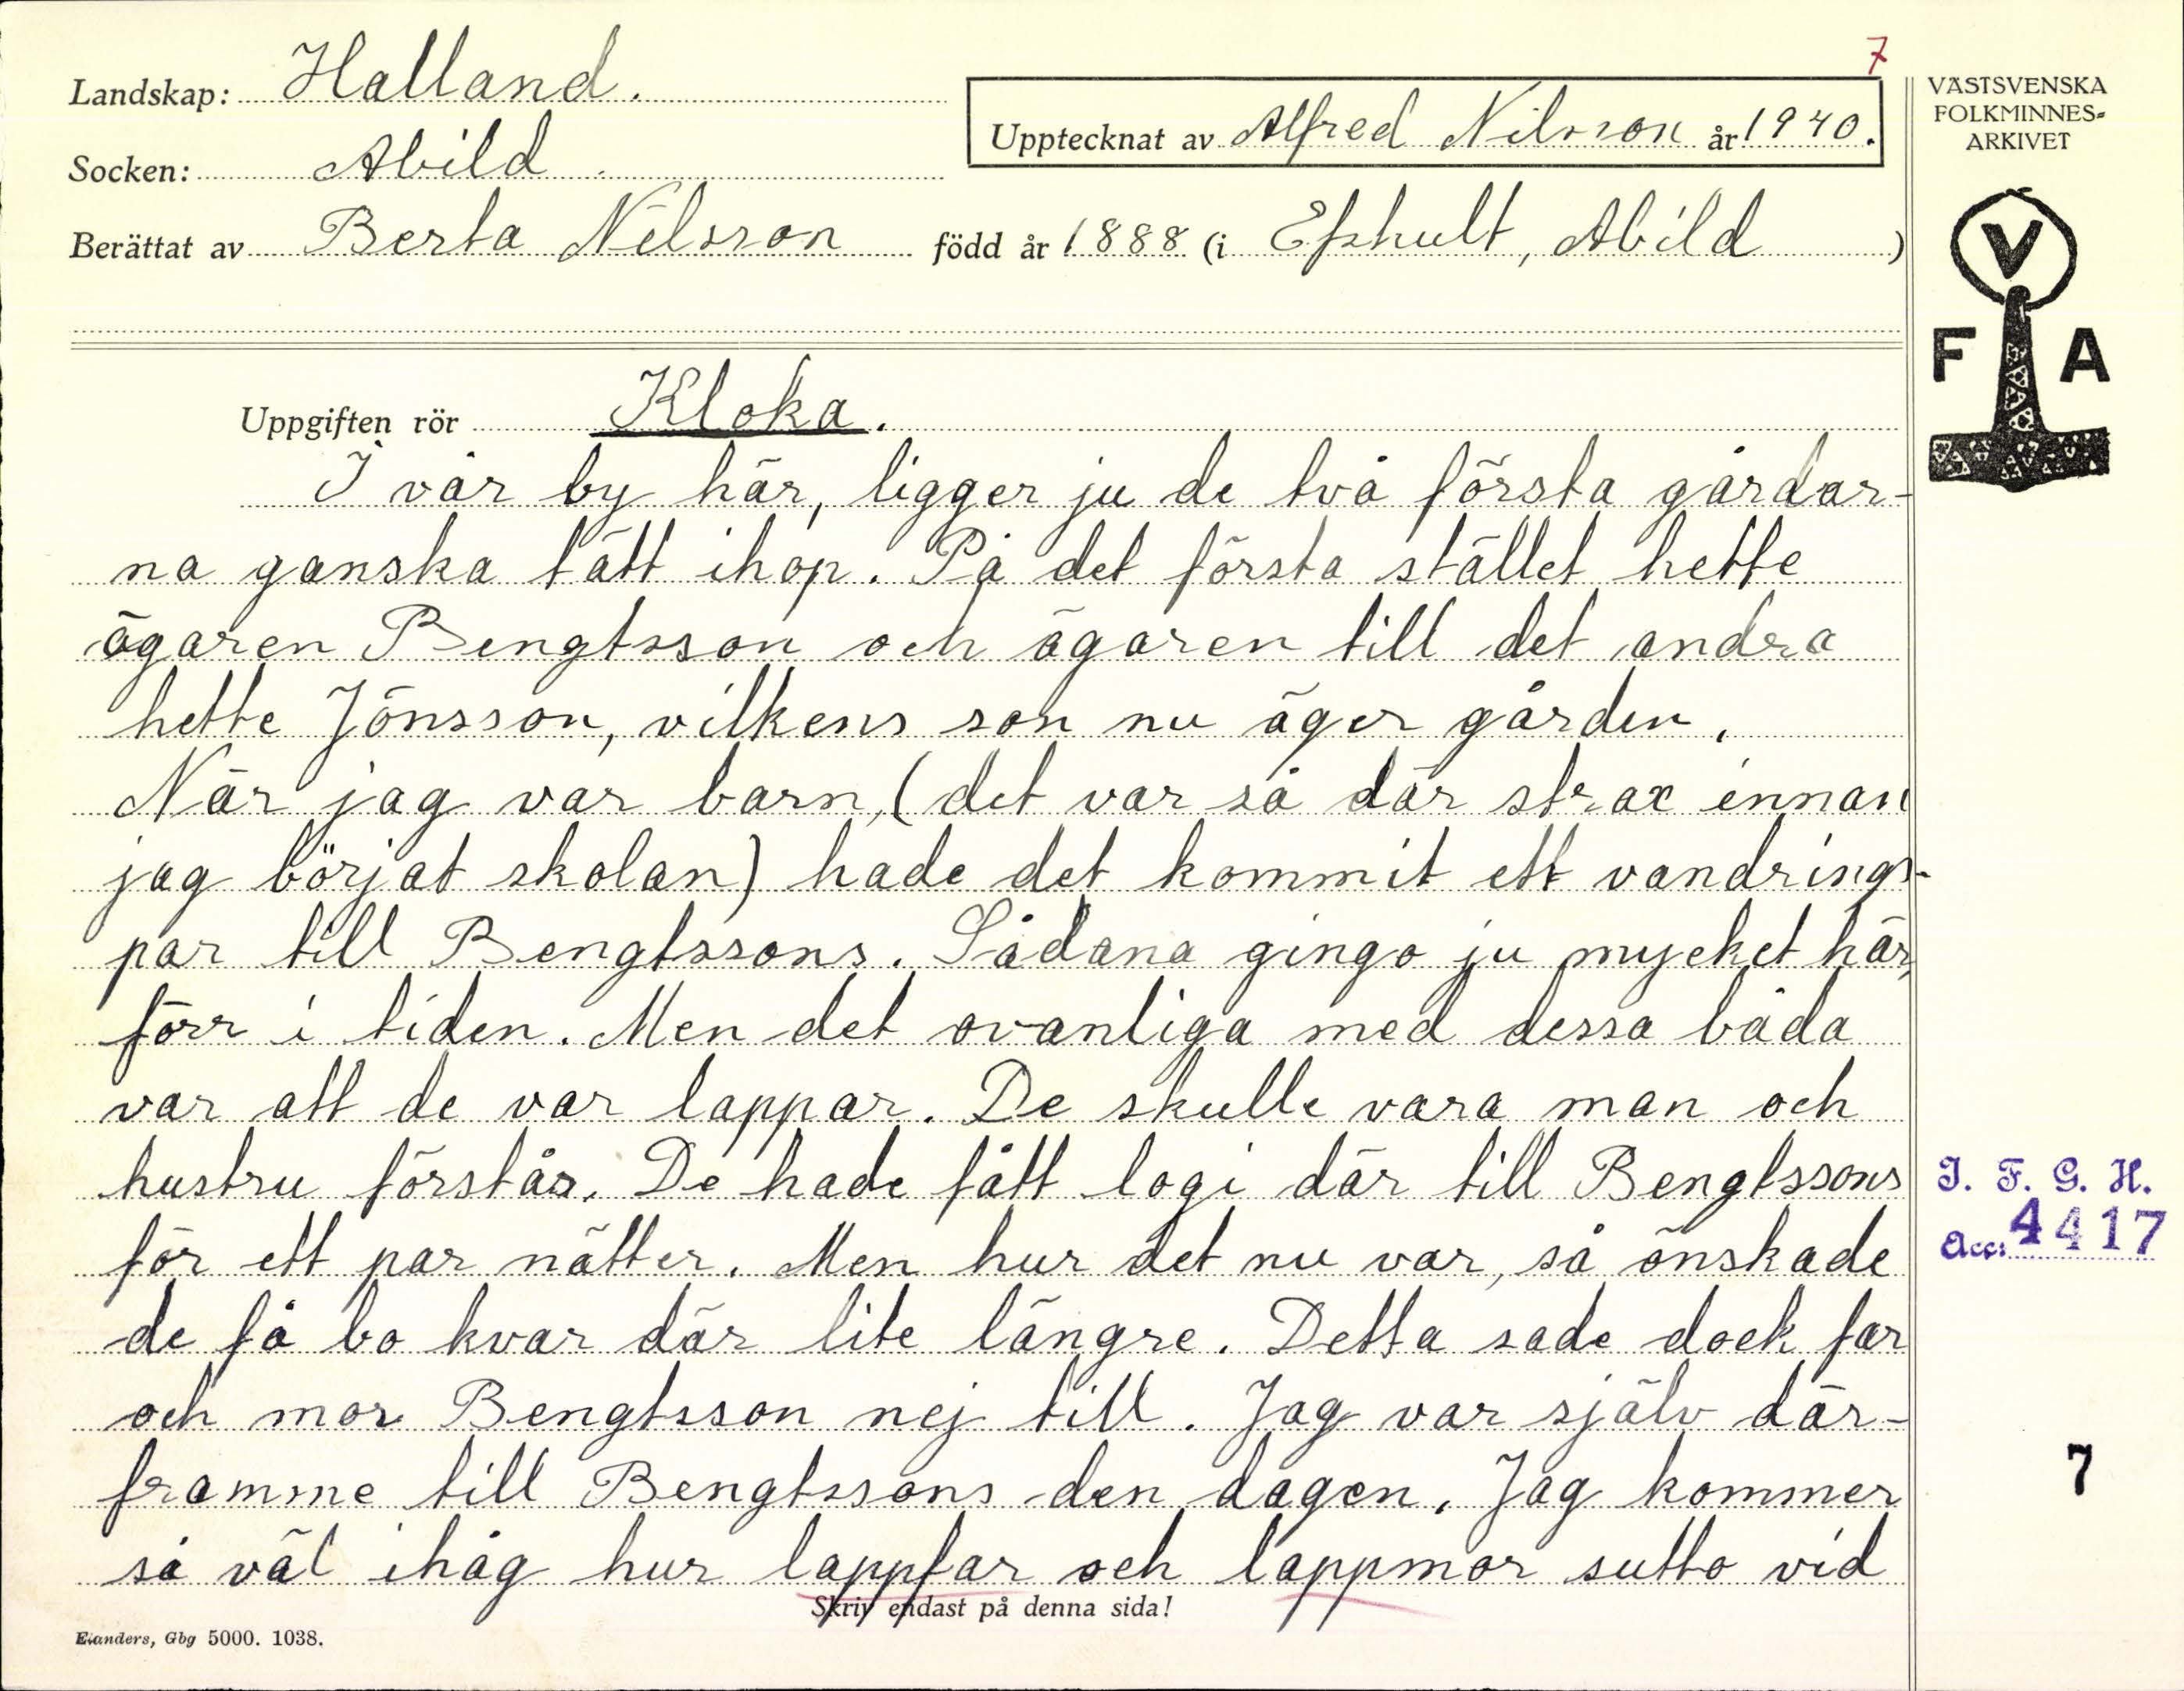 7
Landskap: Halland.
Upptecknat av Alfred Nilsson år 1940.
Socken: Abild.
Berättat av Berta Nilsson född år 1888 (i Efshult, Abild)
VÄSTSVENSKA
FOLKMINNES-
ARKIVET
V
F A
Uppgiften rör Kloka.
I vår by här, ligger ju de två första gårdar-
na ganska tätt ihop. På det första stället hette
ägaren Bengtsson och ägaren till det andra
hette Jönsson, vilkens son nu äger gården.
När jag var barn, (det var så där strax innan
jag börjat skolan) hade det kommit ett vandrings-
par till Bengtssons. Sådana gingo ju mycket här,
förr i tiden. Men det ovanliga med dessa båda
var att de var lappar. De skulle vara man och
hustru förstås. De hade fått logi där till Bengtssons
för ett par nätter. Men hur det nu var, så önskade
de få bo kvar där lite längre. Detta sade dock far
och mor Bengtsson nej till. Jag var själv där-
framme till Bengtssons den dagen. Jag kommer
så väl ihåg hur lappfar och lappmor sutto vid
Skriv endast på denna sida!
Elanders, Gbg 5000. 1038.
I. F. G. H.
Acc: 4417
7